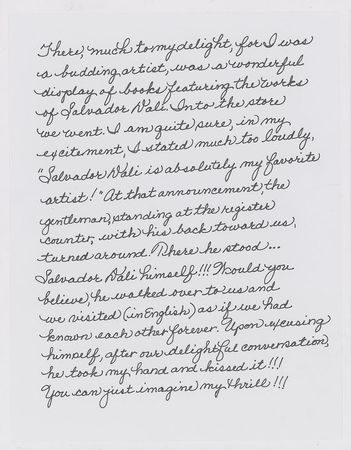 There, much to my delight, for I was
a budding artist, was a wonderful
display of books featuring the works
of Salvador Dali. Into the store
we went. I am quite sure, in my
excitement, I stated much too loudly,
"Salvador Dali is absolutely my favorite
artist!" At that announcement, the
gentleman, standing at the register
counter, with his back toward us,
turned around. There he stood...
Salvador Dali himself!!! Would you
believe, he walked over to us and
we visited (in English) as if we had
known each other forever. Upon excusing
himself, after our delightful conversation,
he took my hand and kissed it!!!
You can just imagine my thrill!!!